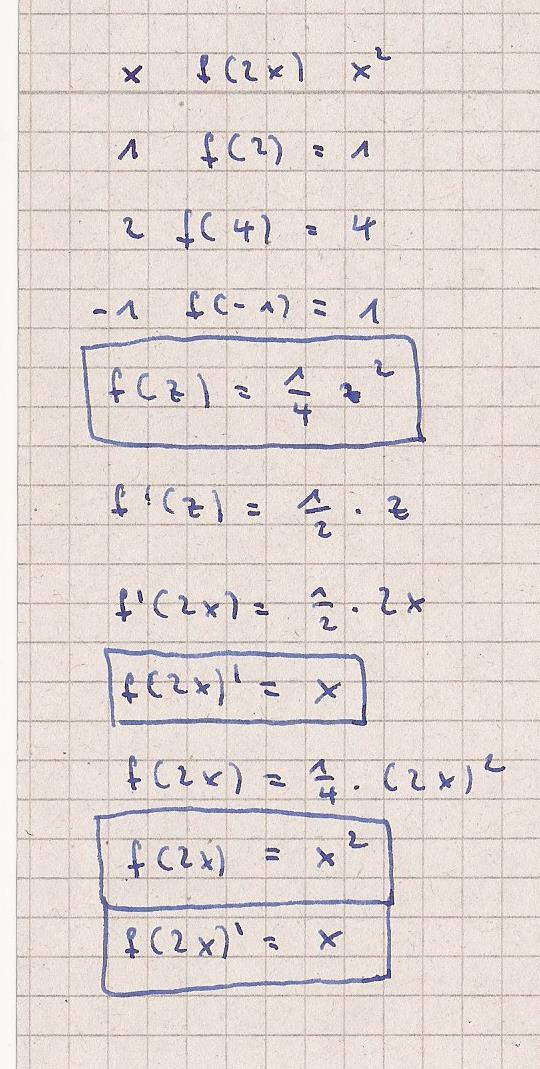 x f(2x) x²
1 f(2) = 1
2 f(4) = 4
-1 f(-1) = 1
f(z) = 1/4 z²
f'(z) = 1/2 · z
f'(2x) = 1/2 · 2x
f(2x)' = x
f(2x) = 1/4 · (2x)²
f(2x) = x²
f(2x)' = x